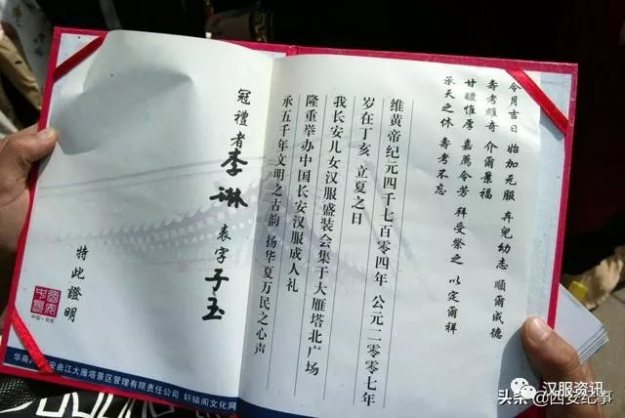 令月吉日 始加元服 弃兒幼志 順爾成德
壽考維奇 介爾景福
甘醴惟厚 嘉薦令芳 拜受祭之 以定爾祥
承天之休 壽考不忘
维黄帝纪元四千七百零四年 公元二零零七年
岁在丁亥 立夏之日
我长安儿女汉服盛装会集于大雁塔北广场
隆重举办中国长安汉服成人礼
承五千年文明之古韵 扬华夏万民之心声
冠禮者李琳 表字子玉
特此證明
安曲江大雁塔景区管理有限责任公司 轩辕阁文化网
汉服资讯
头条 @西安纪事